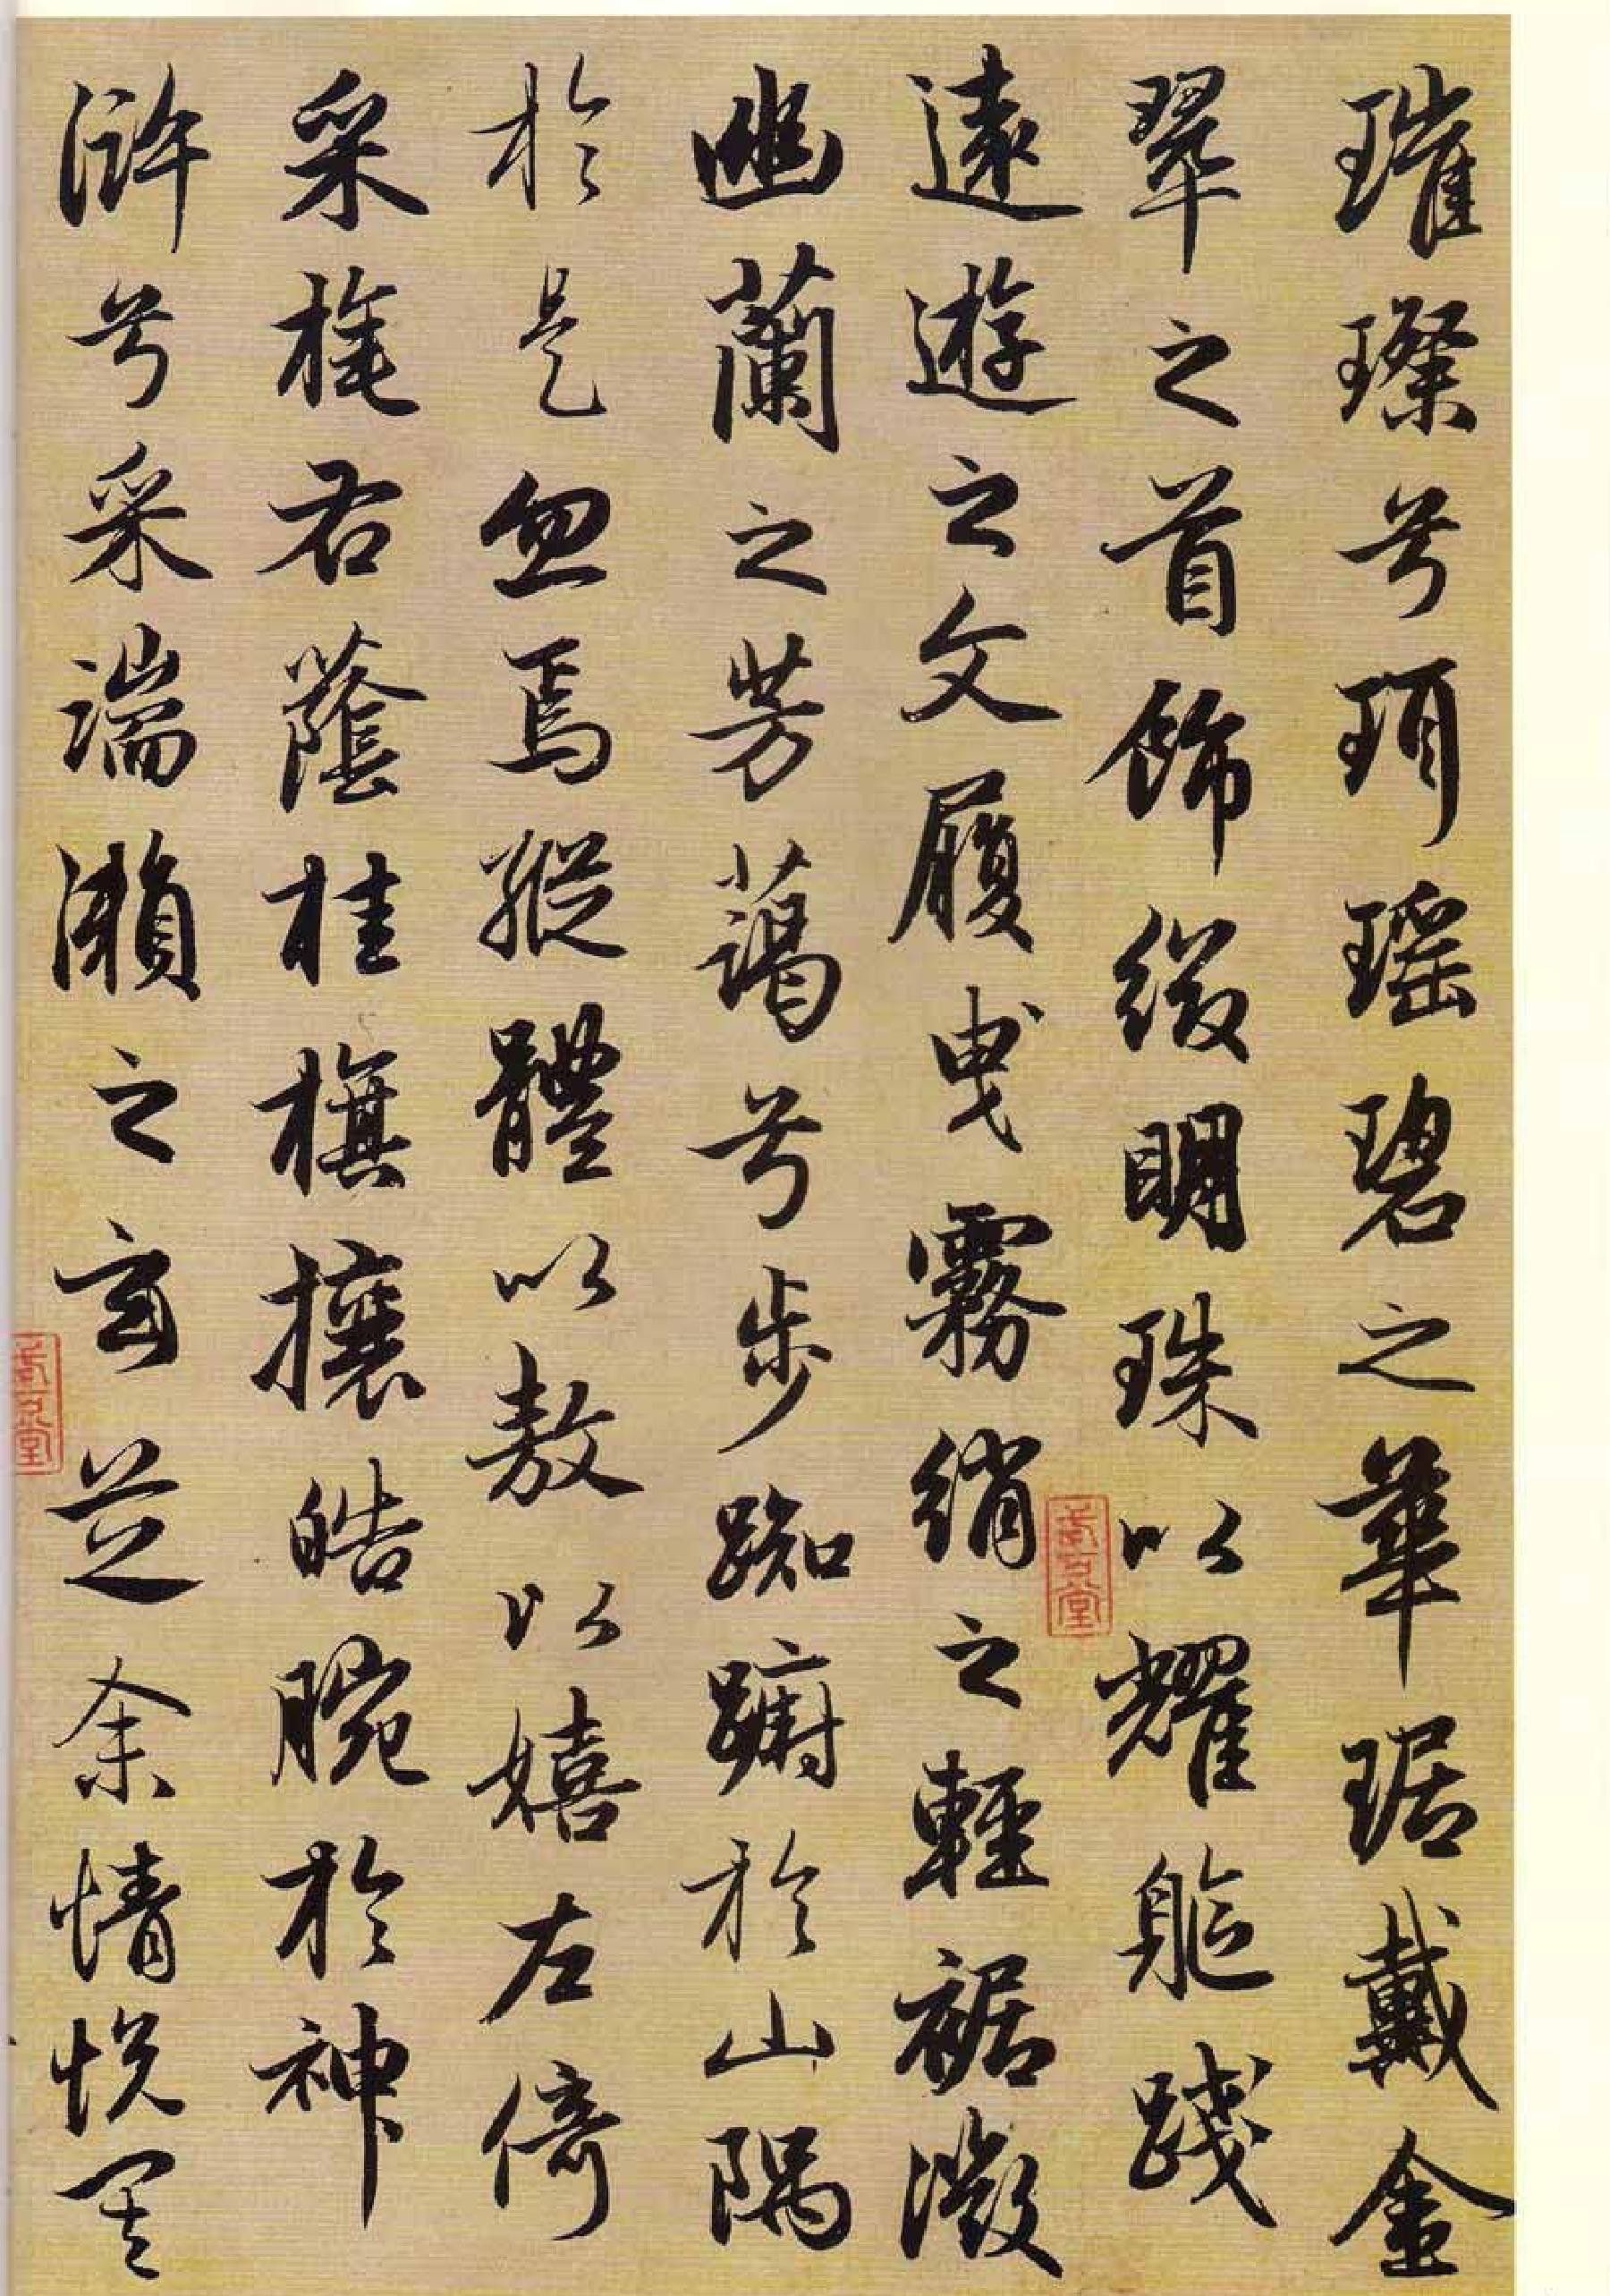 璀璨兮珥瑶碧之華琚戴金
翠之首飾綴明珠以耀軀踐
遠遊之文履曳霧綃之輕裾微
幽蘭之芳藹兮步踟躕於山隅
於是忽焉縱體以敖以嬉左倚
采旄右蔭桂旗攘皓腕於神
滸兮采湍瀨之玄芝余情悅其